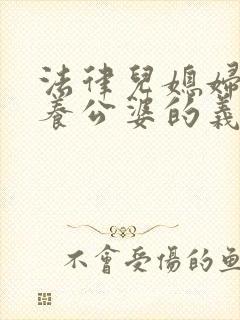 法律兒媳婦
養公婆的義
不會受傷的魚